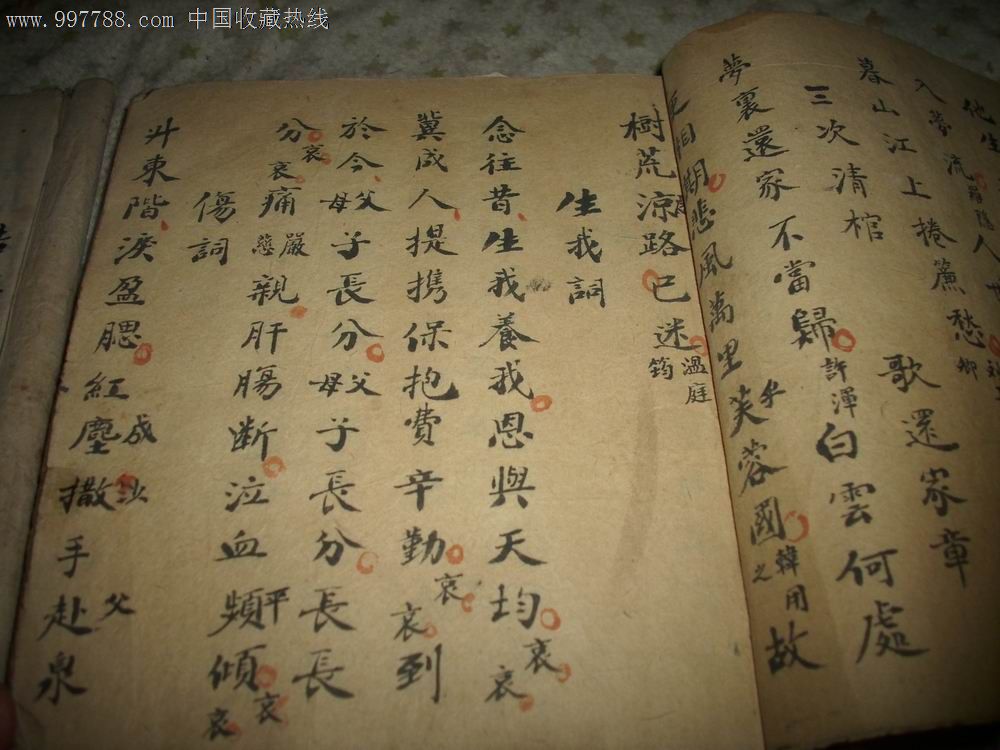 www.997788.com 中国收藏热线
他生
入夢流羅隱人
暮山江上捲簾愁
歌還家章
三次清棺
白雲何處
夢裏還家不當歸許渾
悲風萬里芙蓉國韓用之
故
樹荒涼路已迷溫庭筠
生我詞
念往昔生我養我恩與天均哀哀
冀成人提携保抱費辛勤哀哀到
於今父母子長分父母子長分長長
分哀哀痛嚴慈親肝腸断泣血頻傾哀哀
傷詞
階淚盈腮紅塵撒手赴泉